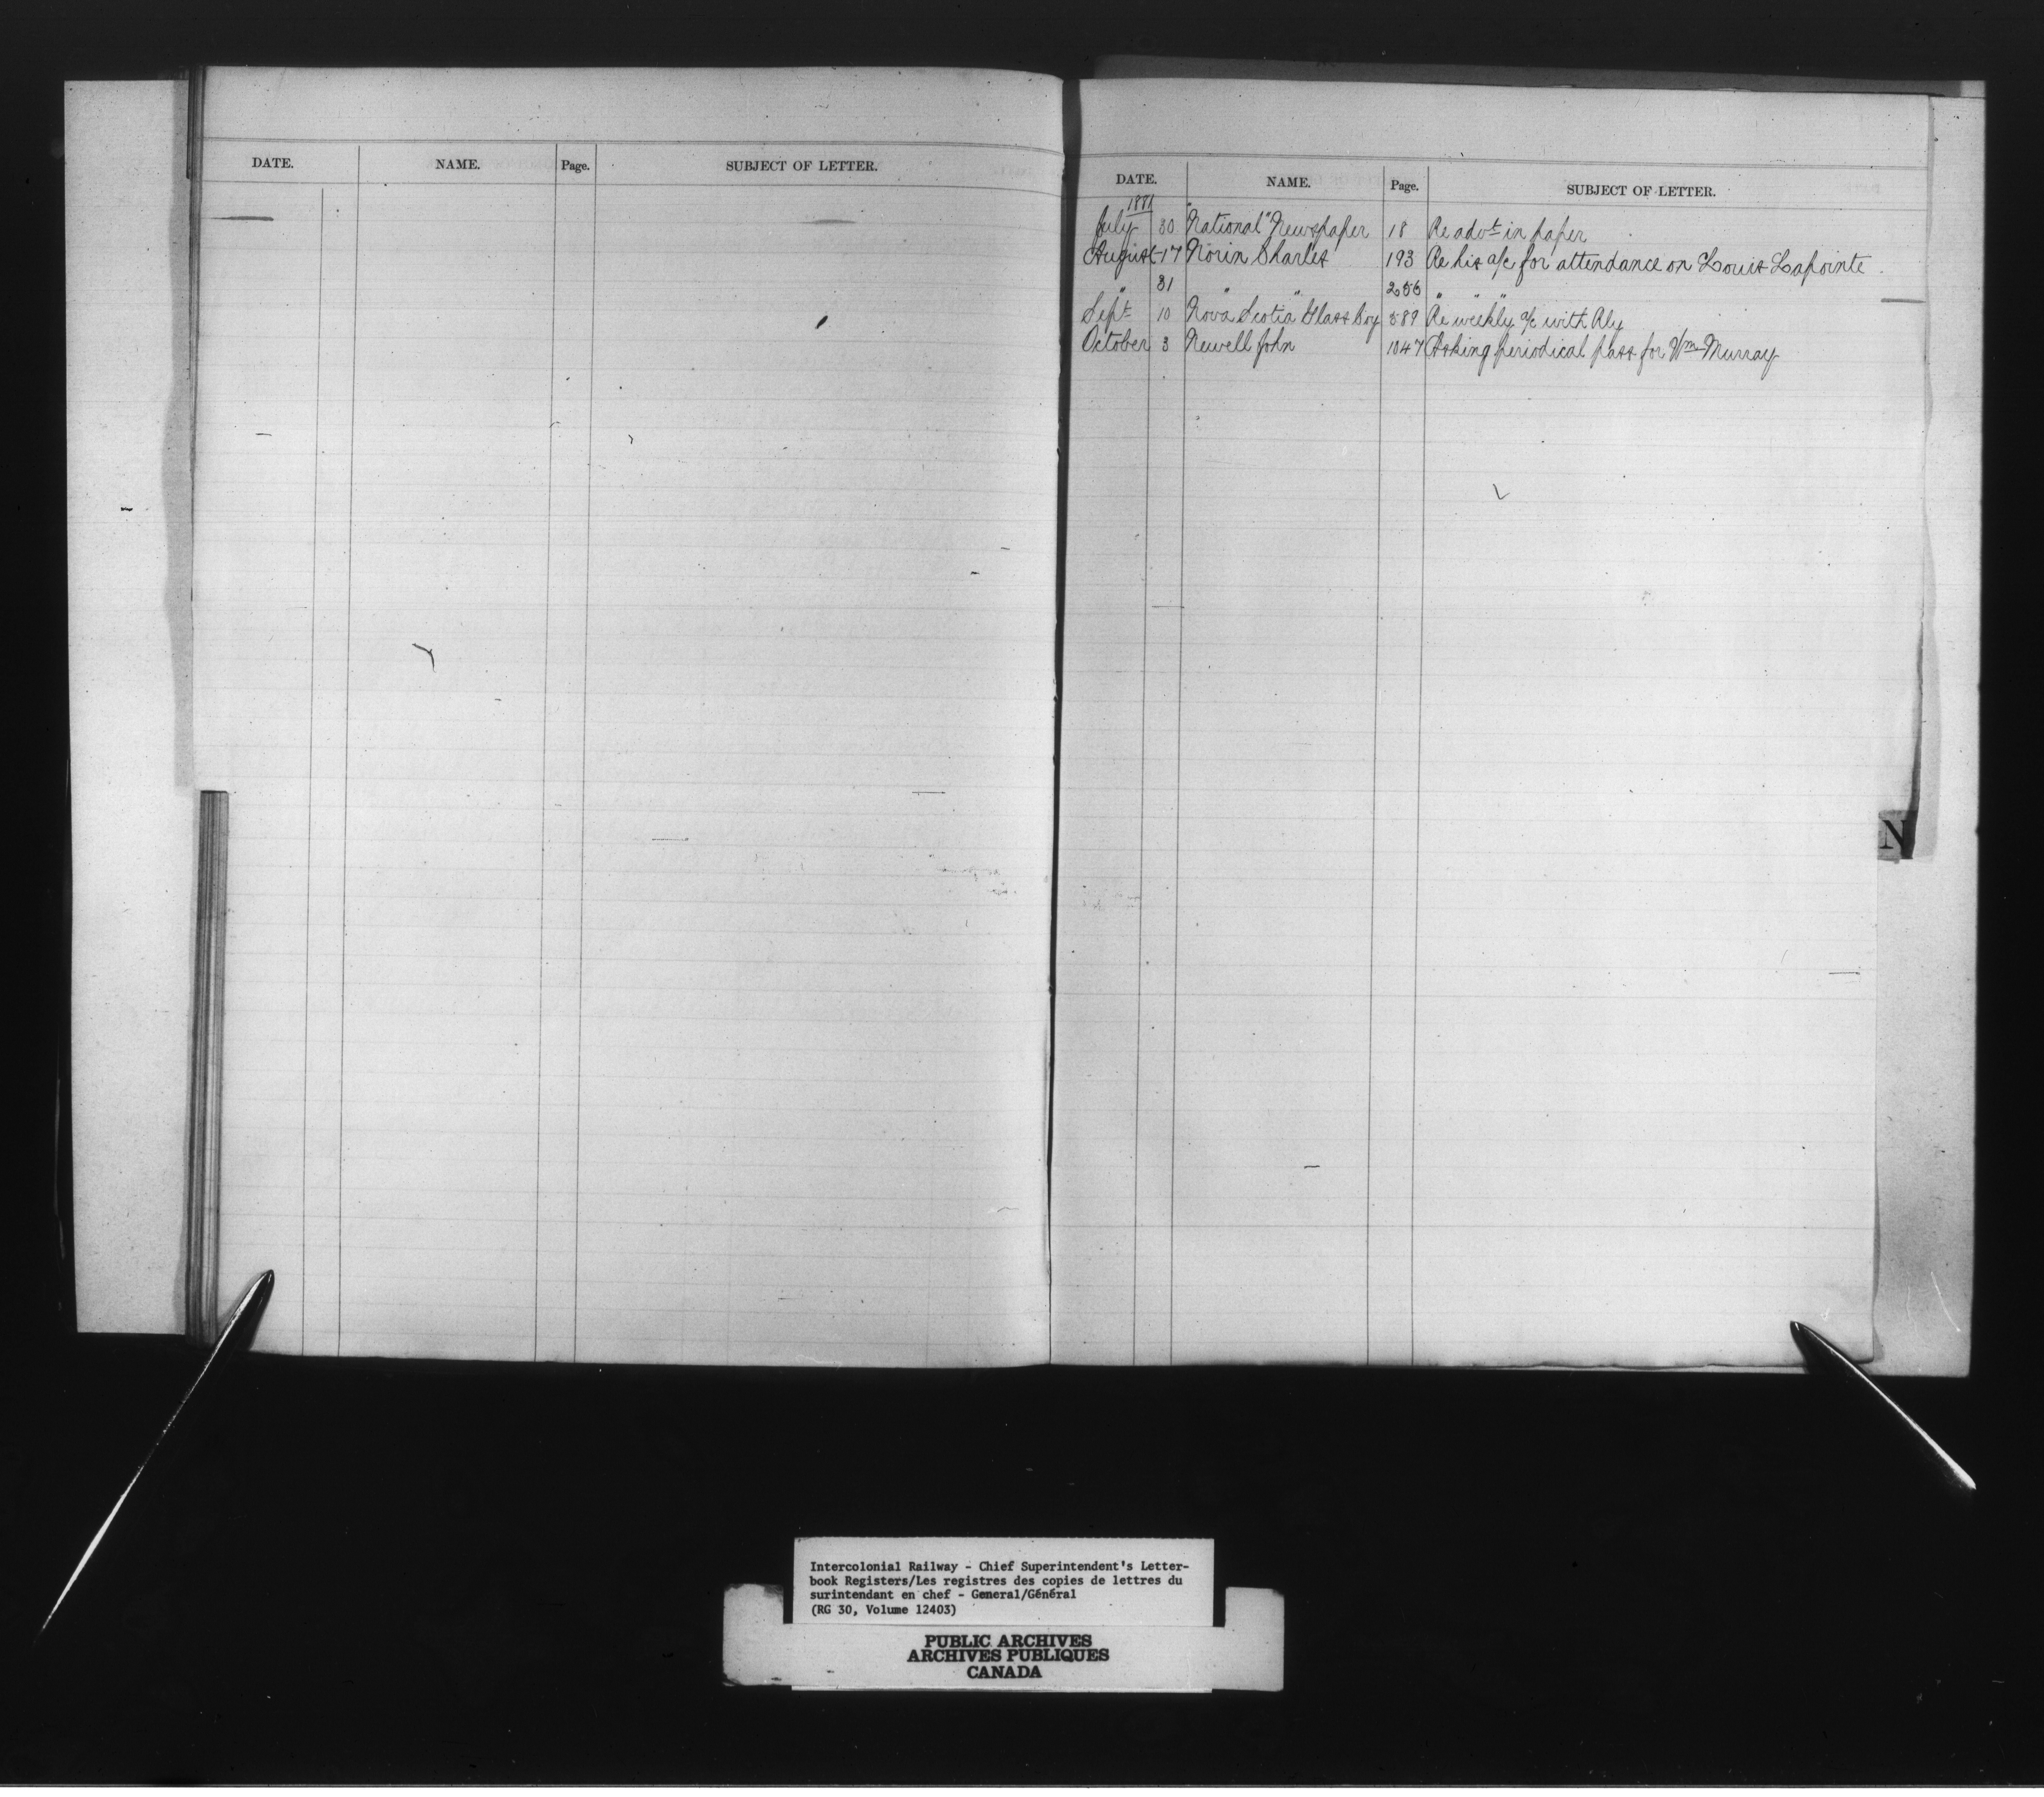 DATE. NAME. Page. SUBJECT OF LETTER.
DATE. NAME. Page. SUBJECT OF LETTER.
1881
July 30 "National" Newspaper 18 Re advt in paper
August 17 Norin Charles 193 Re his a/c for attendance on Louis Lapointe
" 31 " " 256 " " "
Sept 10 Nova Scotia Glass Coy 589 Re weekly a/c with Rly
October 3 Newell John 1047 Asking periodical pass for Wm Murray
N
Intercolonial Railway - Chief Superintendent's Letter-
book Registers/Les registres des copies de lettres du
surintendant en chef - General/Général
(RG 30, Volume 12403)
PUBLIC ARCHIVES
ARCHIVES PUBLIQUES
CANADA